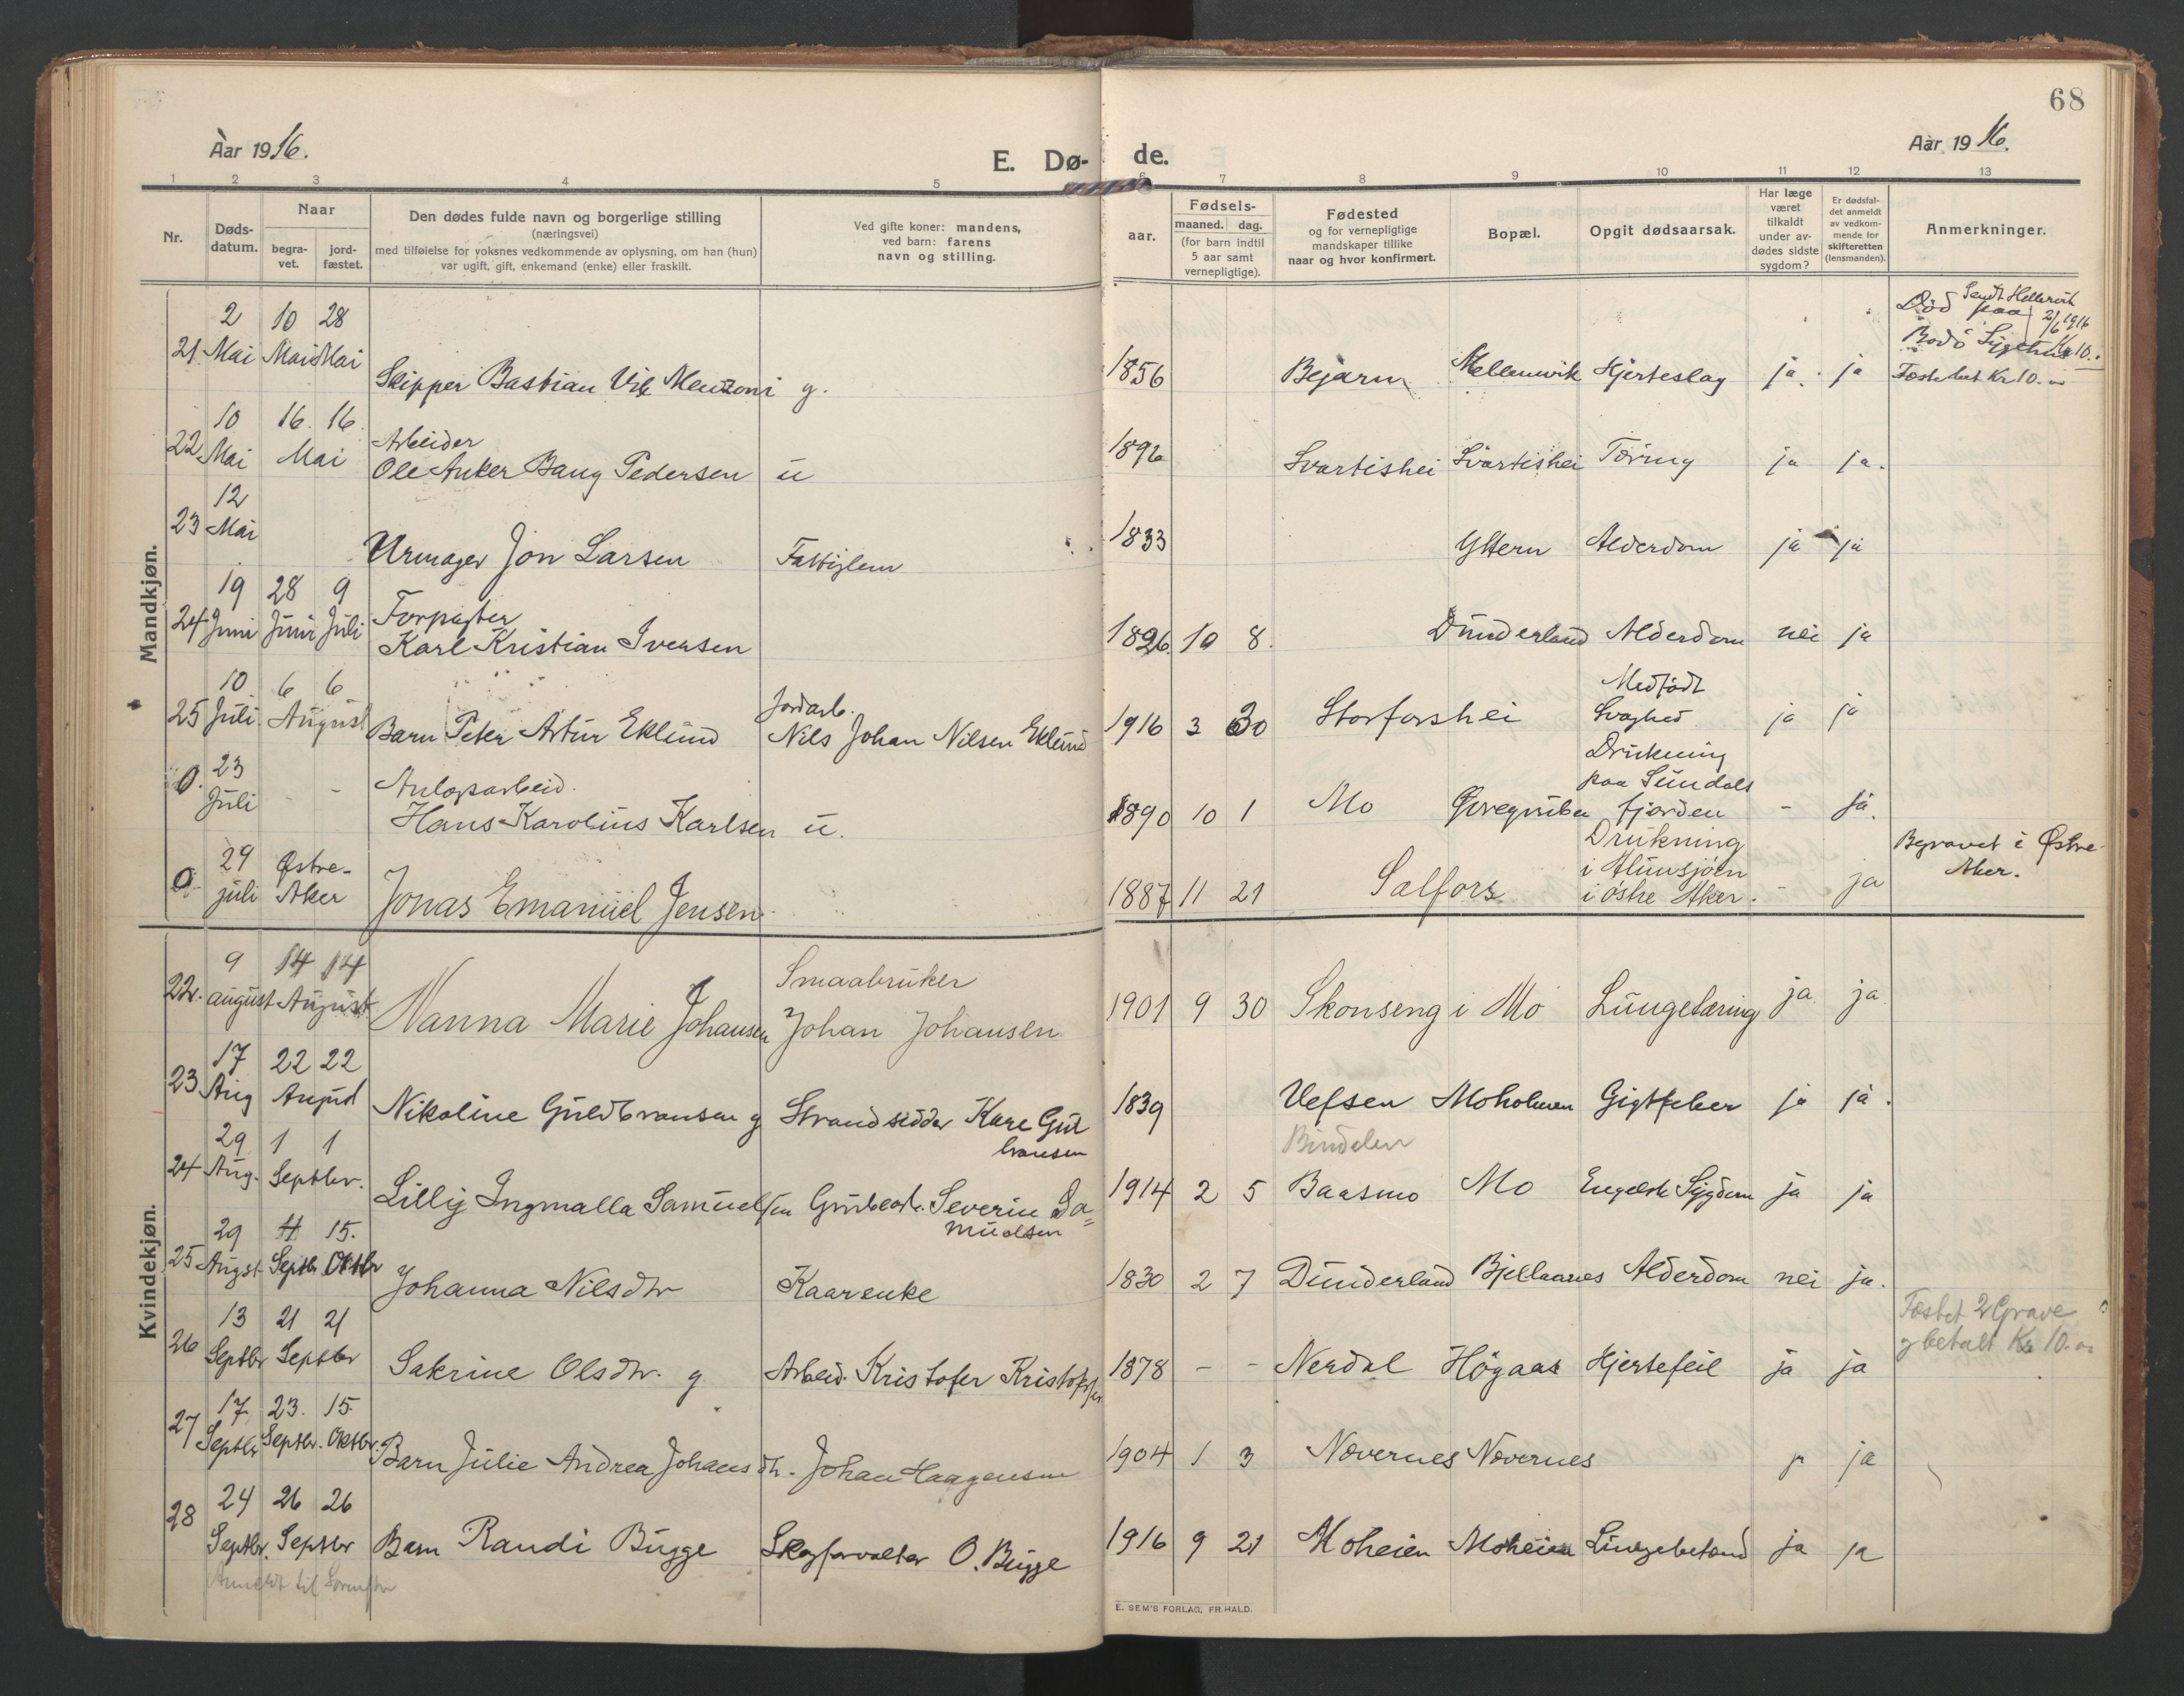 68
Aar 1916.
E. Dø- de.
Aar 1916.
1 2 3 4 5 6 7 8 9 10 11 12 13
Nr.
Døds-datum.
Naar
begra-vet.
jord-fæstet.
Den dødes fulde navn og borgerlige stilling
(næringsvei)
med tilføielse for voksnes vedkommende av oplysning, om han (hun)
var ugift, gift, enkemand (enke) eller fraskilt.
Ved gifte koner: mandens,
ved barn: farens
navn og stilling.
Fødsels-
aar.
maaned. dag.
(for barn indtil
5 aar samt
vernepligtige).
Fødested
og for vernepligtige
mandskaper tillike
naar og hvor konfirmert.
Bopæl.
Opgit dødsaarsak.
Har læge
været
tilkaldt
under av-
dødes sidste
sygdom?
Er dødsfal-
det anmeldt
av vedkom-
mende for
skifteretten
(lensmanden).
Anmerkninger.
Mandkjøn.
2 10 28 Død paa
21. Mai Mai Mai Skipper Bastian g. 1856 Bejarn Hjerteslag ja. ja Bodø Sygehus Kr 10.
10 16. 16. Arbeider
22 Mai Mai Ole Anker Baug Pedersen u 1896 Svartishei Svartishei Tæring ja ja.
12
23 Mai Urmager Jon Larsen Fattiglem 1833 Yttern Alderdom ja ja
19 28 9 Forpagter
24 Juni Juni Juli Karl Kristian Iversen 1826 10 8. Dunderland Alderdom nei ja
10 6 6 Jordarb. Medfødt
25 Juli. August Barn Peter Artur Eklund Nils Johan Nilsen Eklund 1916 3 30 Storforshei Svaghed ja ja
23 Anlægsarbeid. Drukning paa Sundals
0. Juli - - Hans Karolius Karlsen u. 1890 10 1 Mo fjorden - ja.
29 Østre- Drukning i Begravet i Østre
0 juli Aker Jonas Emanuel Jensen 1887 11 21 Salfors i østre Aker. - ja Aker.
Kvindekjøn.
9 14 14 Smaabruker
22. august August Nanna Marie Johansen Johan Johansen. 1901 9 30 Skonseng i Mo Lungetæring ja ja
17 22 22
23 Aug August Nikoline Guldbransen g Strandsidder Gulbransen 1839 Vefsen Moholmen Gigtfeber ja ja.
Bindalen
29 1 1
24 Aug. Septbr. Lilly Ingmalla Samuelsen Grubearb. Severin Samuelsen 1914 2 5 Baasmo Mo Engelsk Sygdom ja ja
29 4 15.
25 Augst Septb. Oktbr Johanna Nilsdtr Kaarenke 1830 2 7 Dunderland Bjellaanes Alderdom nei ja.
13 21 21 Fæstet 2 Grave
26 Septbr Septbr Sakrine Olsdtr. g Arbeid. Kristofer Kristoffersen 1878 - - Nerdal Høgaas Hjertefeil ja ja og betalt Kr 10.
17. 23. 15.
27 Septbr Septbr. Oktbr. Barn Julie Andrea Johansdtr. Johan Haagensen 1904 1 3 Nævernes Nævernes ja
24 26 26
28 Septbr. Septbr Barn Randi Bugge Skogforvalter O. Bugge 1916 9 21 Moheien Moheien Lungebetænd ja ja
E. SEM'S FORLAG, FR.HALD.